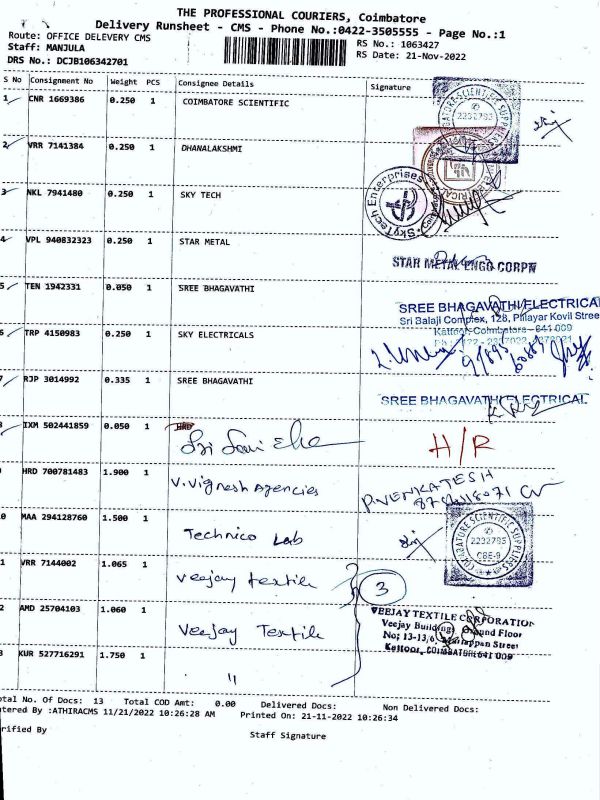 THE PROFESSIONAL COURIERS, Coimbatore
Delivery Runsheet - CMS - Phone No.:0422-3505555 - Page No.:1
Route: OFFICE DELEVERY CMS
RS No.: 1063427
Staff: MANJULA
RS Date: 21-Nov-2022
DRS No.: DCJB106342701
S No Consignment No Weight PCS Consignee Details Signature
1 CNR 1669386 0.250 1 COIMBATORE SCIENTIFIC
2232783
2 VRR 7141384 0.250 1 DHANALAKSHMI
3 NKL 7941480 0.250 1 SKY TECH
SkyTech Enterprises
4 VPL 940832323 0.250 1 STAR METAL
STAR METAL ENGG CORPN
5 TEN 1942331 0.050 1 SREE BHAGAVATHI
SREE BHAGAVATHI ELECTRICAL
Sri Balaji Complex, 128, Pillayar Kovil Stree
Kattoor, Coimbatore - 641 009
6 TRP 4150983 0.250 1 SKY ELECTRICALS
7 RJP 3014992 0.335 1 SREE BHAGAVATHI
SREE BHAGAVATHI ELECTRICAL
IXM 502441859 0.050 1 HRD
H/R
HRD 700781483 1.900 1 V. Vignesh Agencies
P. VENKATESH
0 MAA 294128760 1.500 1 Technico Lab
COIMBATORE SCIENTIFIC SUPPLIERS
2232783
CBE-9
1 VRR 7144002 1.065 1 Veejay textile
3
2 AMD 25704103 1.060 1 Veejay Textile
VEEJAY TEXTILE CORPORATION
Veejay Building, Ground Floor
No; 13-13/6, Street
Kattoor, COIMBATORE 641 009
3 KUR 527716291 1.750 1 "
otal No. Of Docs: 13 Total COD Amt: 0.00 Delivered Docs: Non Delivered Docs:
tered By :ATHIRACMS 11/21/2022 10:26:28 AM Printed On: 21-11-2022 10:26:34
rified By
Staff Signature